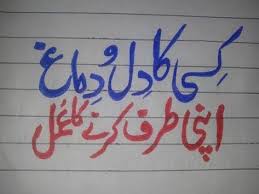 کِسی کا دِل و دِماغ
اپنی طرف کرنے کا عمل